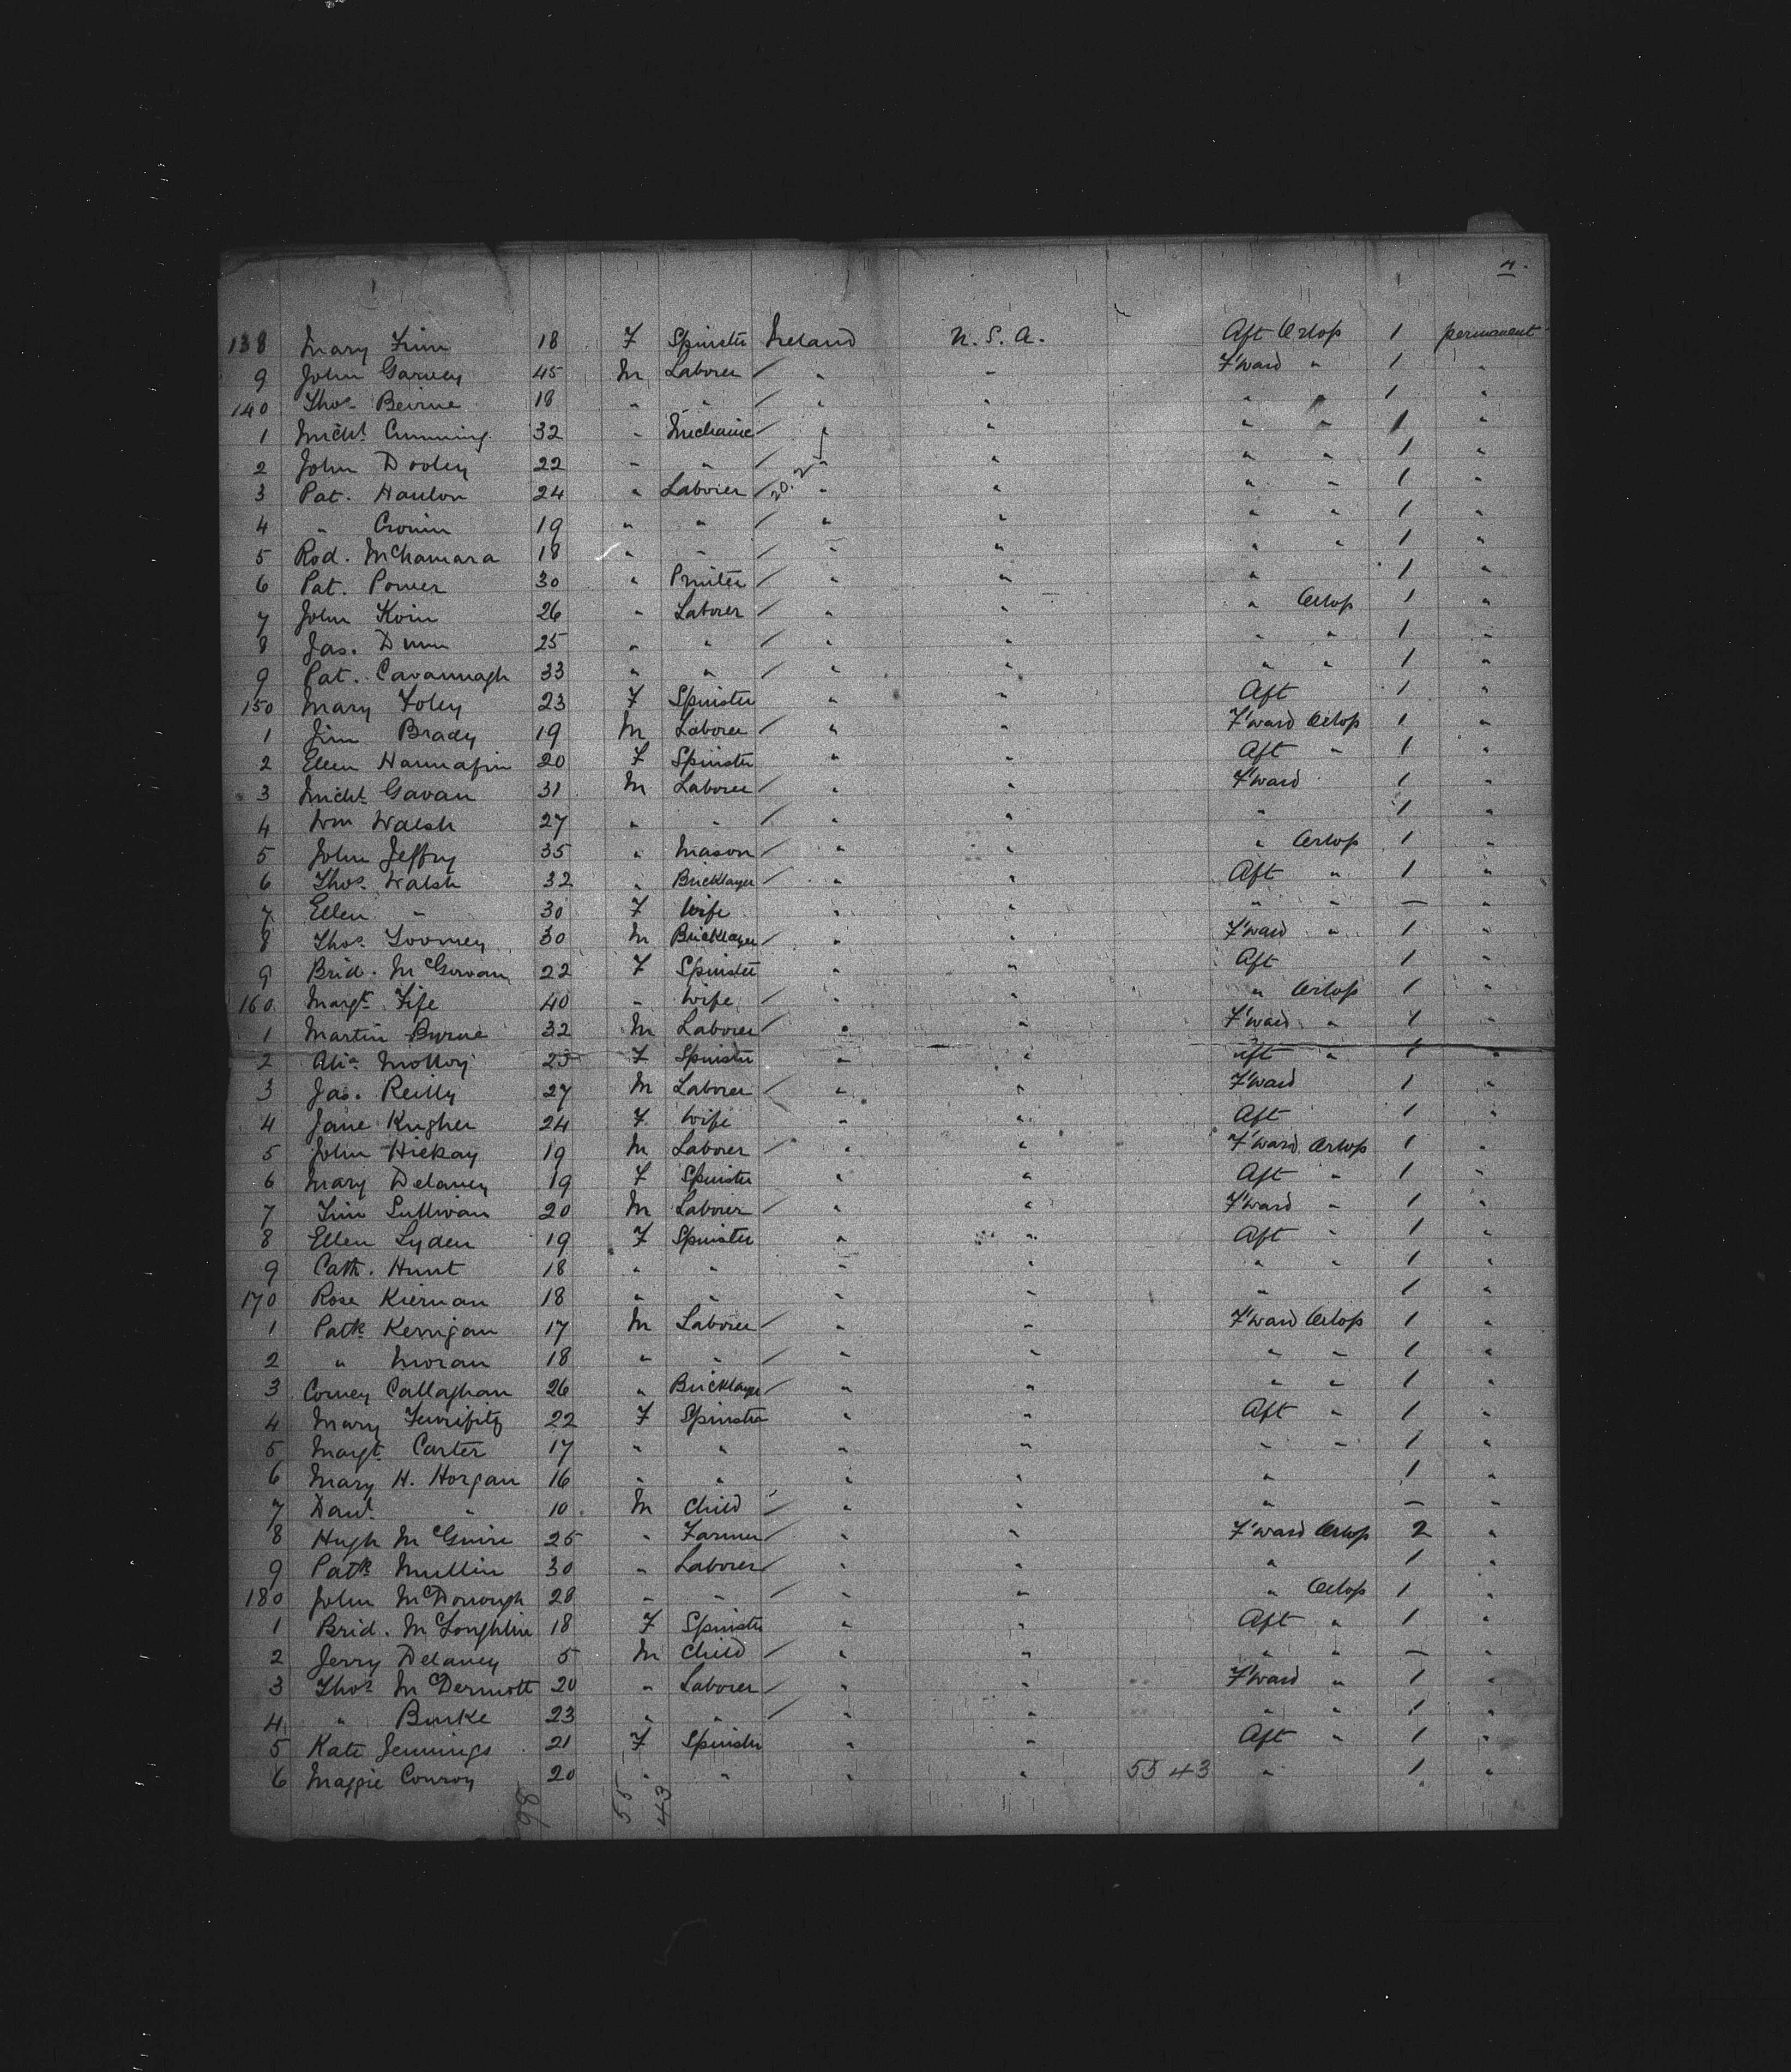 4.
138 Mary Finn 18 F Spinster Ireland U.S.A. Aft Orlop 1 permanent
9 John Garvey 45 M Laborer / " " F'ward " 1 "
140 Thos. Beirne 18 " " / " " " " 1 "
1 Michl. Cumming 32 " Mechanic / " " " " 1 "
2 John Dooley 22 " " / " " " " 1 "
3 Pat. Hanlon 24 " Laborer / " " " " 1 "
4 " Cronin 19 " " / " " " " 1 "
5 Rod. McNamara 18 " " / " " " " 1 "
6 Pat. Power 30 " Printer / " " " 1 "
7 John Koin 26 " Laborer / " " " Orlop 1 "
8 Jas. Dunn 25 " " / " " " " 1 "
9 Pat. Cavannagh 33 " " / " " " " 1 "
150 Mary Foley 23 F Spinster " " Aft 1 "
1 Jim Brady 19 M Laborer / " " F'ward Orlop 1 "
2 Ellen Hannafin 20 F Spinster " " Aft " 1 "
3 Michl. Gavan 31 M Laborer / " " F'ward 1 "
4 Wm Walsh 27 " " / " " " 1 "
5 John Jeffry 35 " Mason / " " " Orlop 1 "
6 Thos. Walsh 32 " Bricklayer / " " Aft " 1 "
7 Ellen " 30 F Wife " " " " — "
8 Thos. Toomey 30 M Bricklayer / " " F'ward " 1 "
9 Brid. McGowan 22 F Spinster " " Aft 1 "
160 Margt. Fife 40 " Wife / " " " Orlop 1 "
1 Martin Byrne 32 M Laborer / " " F'ward " 1 "
2 Molloy 25 F Spinster " " Aft " 1 "
3 Jas. Reilly 27 M Laborer / " " F'ward 1 "
4 Jane Kugher 24 F Wife " " Aft 1 "
5 John Hickay 19 M Laborer / " " F'ward Orlop 1 "
6 Mary Delaney 19 F Spinster " " Aft " 1 "
7 Tim Sullivan 20 M Laborer / " " F'ward " 1 "
8 Ellen Lyden 19 F Spinster " " Aft " 1 "
9 Cath. Hunt 18 " " " " " " 1 "
170 Rose Kiernan 18 " " " " " 1 "
1 Patk. Kerrigan 17 M Laborer / " " F'ward Orlop 1 "
2 " Moran 18 " " / " " " " 1 "
3 Corney Callaghan 26 " Bricklayer / " " " " 1 "
4 Mary 22 F Spinster " " Aft " 1 "
5 Margt. Carter 17 " " " " " " 1 "
6 Mary H. Horgan 16 " " " " " 1 "
7 Danl. " 10 M Child / " " " — "
8 Hugh McGuire 25 " Farmer / " " F'ward Orlop 2 "
9 Patk. Mullin 30 " Laborer / " " " 1 "
180 John McDonough 28 " " / " " " Orlop 1 "
1 Brid. McLoughlin 18 F Spinster " " Aft " 1 "
2 Jerry Delaney 5 M Child / " " " " — "
3 Thos. McDermott 20 " Laborer / " " F'ward " 1 "
4 " Burke 23 " " / " " " " 1 "
5 Kate Jennings 21 F Spinster " " Aft " 1 "
6 Maggie Conroy 20 " " " " 55 43 " 1 "
98 55 43